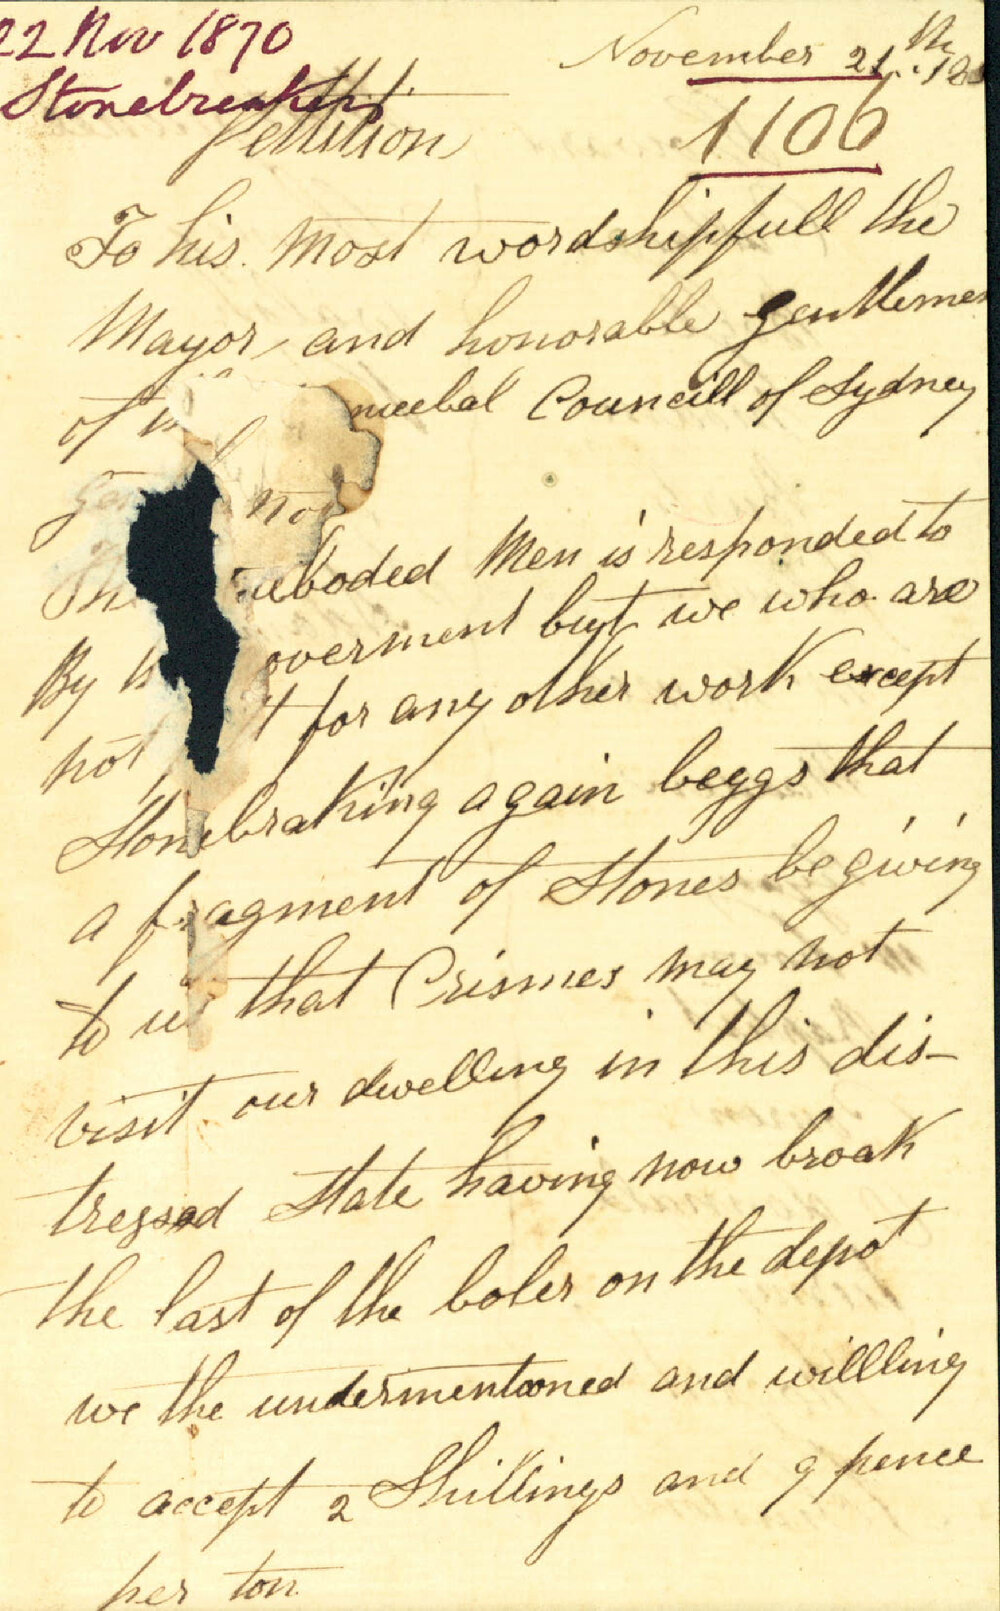 22 Nov 1870
Stonebreakers
November 21
Pettition
1106
To his Most wordshipfull the
Mayor and honorable gentlemen
of Councill of Sydney
boded Men is responded to
By but we who are
not for any other work except
Stonebraking again beggs that
a fragment of Stones be giving
to us that Crismes may not
visit our dwelling in this dis-
tressed State having now broak
the last of the boles on the depot
we the undermentooned and willling
to accept 2 Shillings and 9 pence
per ton